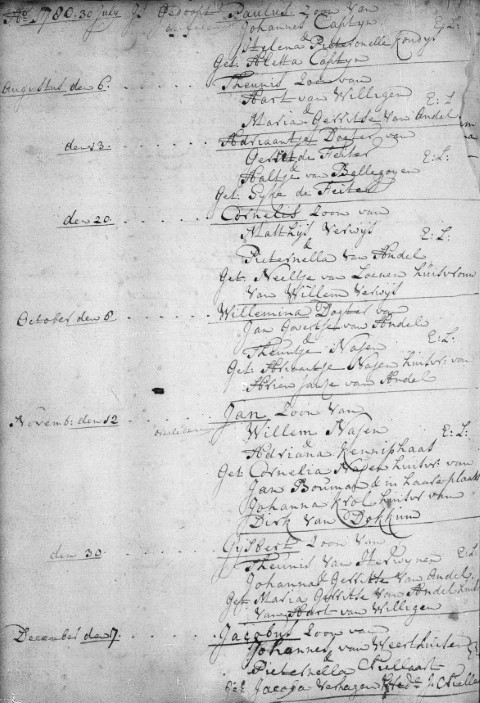 Ao. 1780. 30 july is Gedoopt Paulus Zoon van
Johannes Capteyn E:L:
&
Helena Pieternelle
Get: Aletta Capteyn
Augustus den 6. Theunis Zoon van
Aart van Willigen
& E:L
Maria Gerritse van Andel
den 13. Adriaantje Dogter van
Gerrit de Fehter E:L:
&
Aaltje van Bellegoyen
Get:
den 20. Cornelis Zoon van
Matthijs Verwijs
& E:L:
Pieternella van Andel
Get: Neeltje van Loenen huisvrouw
van Willem Verwijs
October den 8. Willemina Dogter van
Jan Govertse van Andel
& E:L
Theuntje Najen
Get: Adriaantje Najen huisvr: van
Adrien Janse van Andel
Novemb: den 12 Jan Zoon van
overleden Willem Najen
& E:L:
Adriana
Get: Cornelia Najen huisvr: van
Jan Bouman & in haar plaats
Johanna Krol huisvr van
Dirk van Dokkum
den 30. Gijsbert Zoon van
Theunis van Herwynen E:L
&
Johanna Gerritse van Andel
Get: Maria Gerritse van Andel
van Aart van Willigen
December den 17. Jacobus Zoon van
Johannes van Weerthuisen
&
Pieternella
Get: Jacoba Verhagen